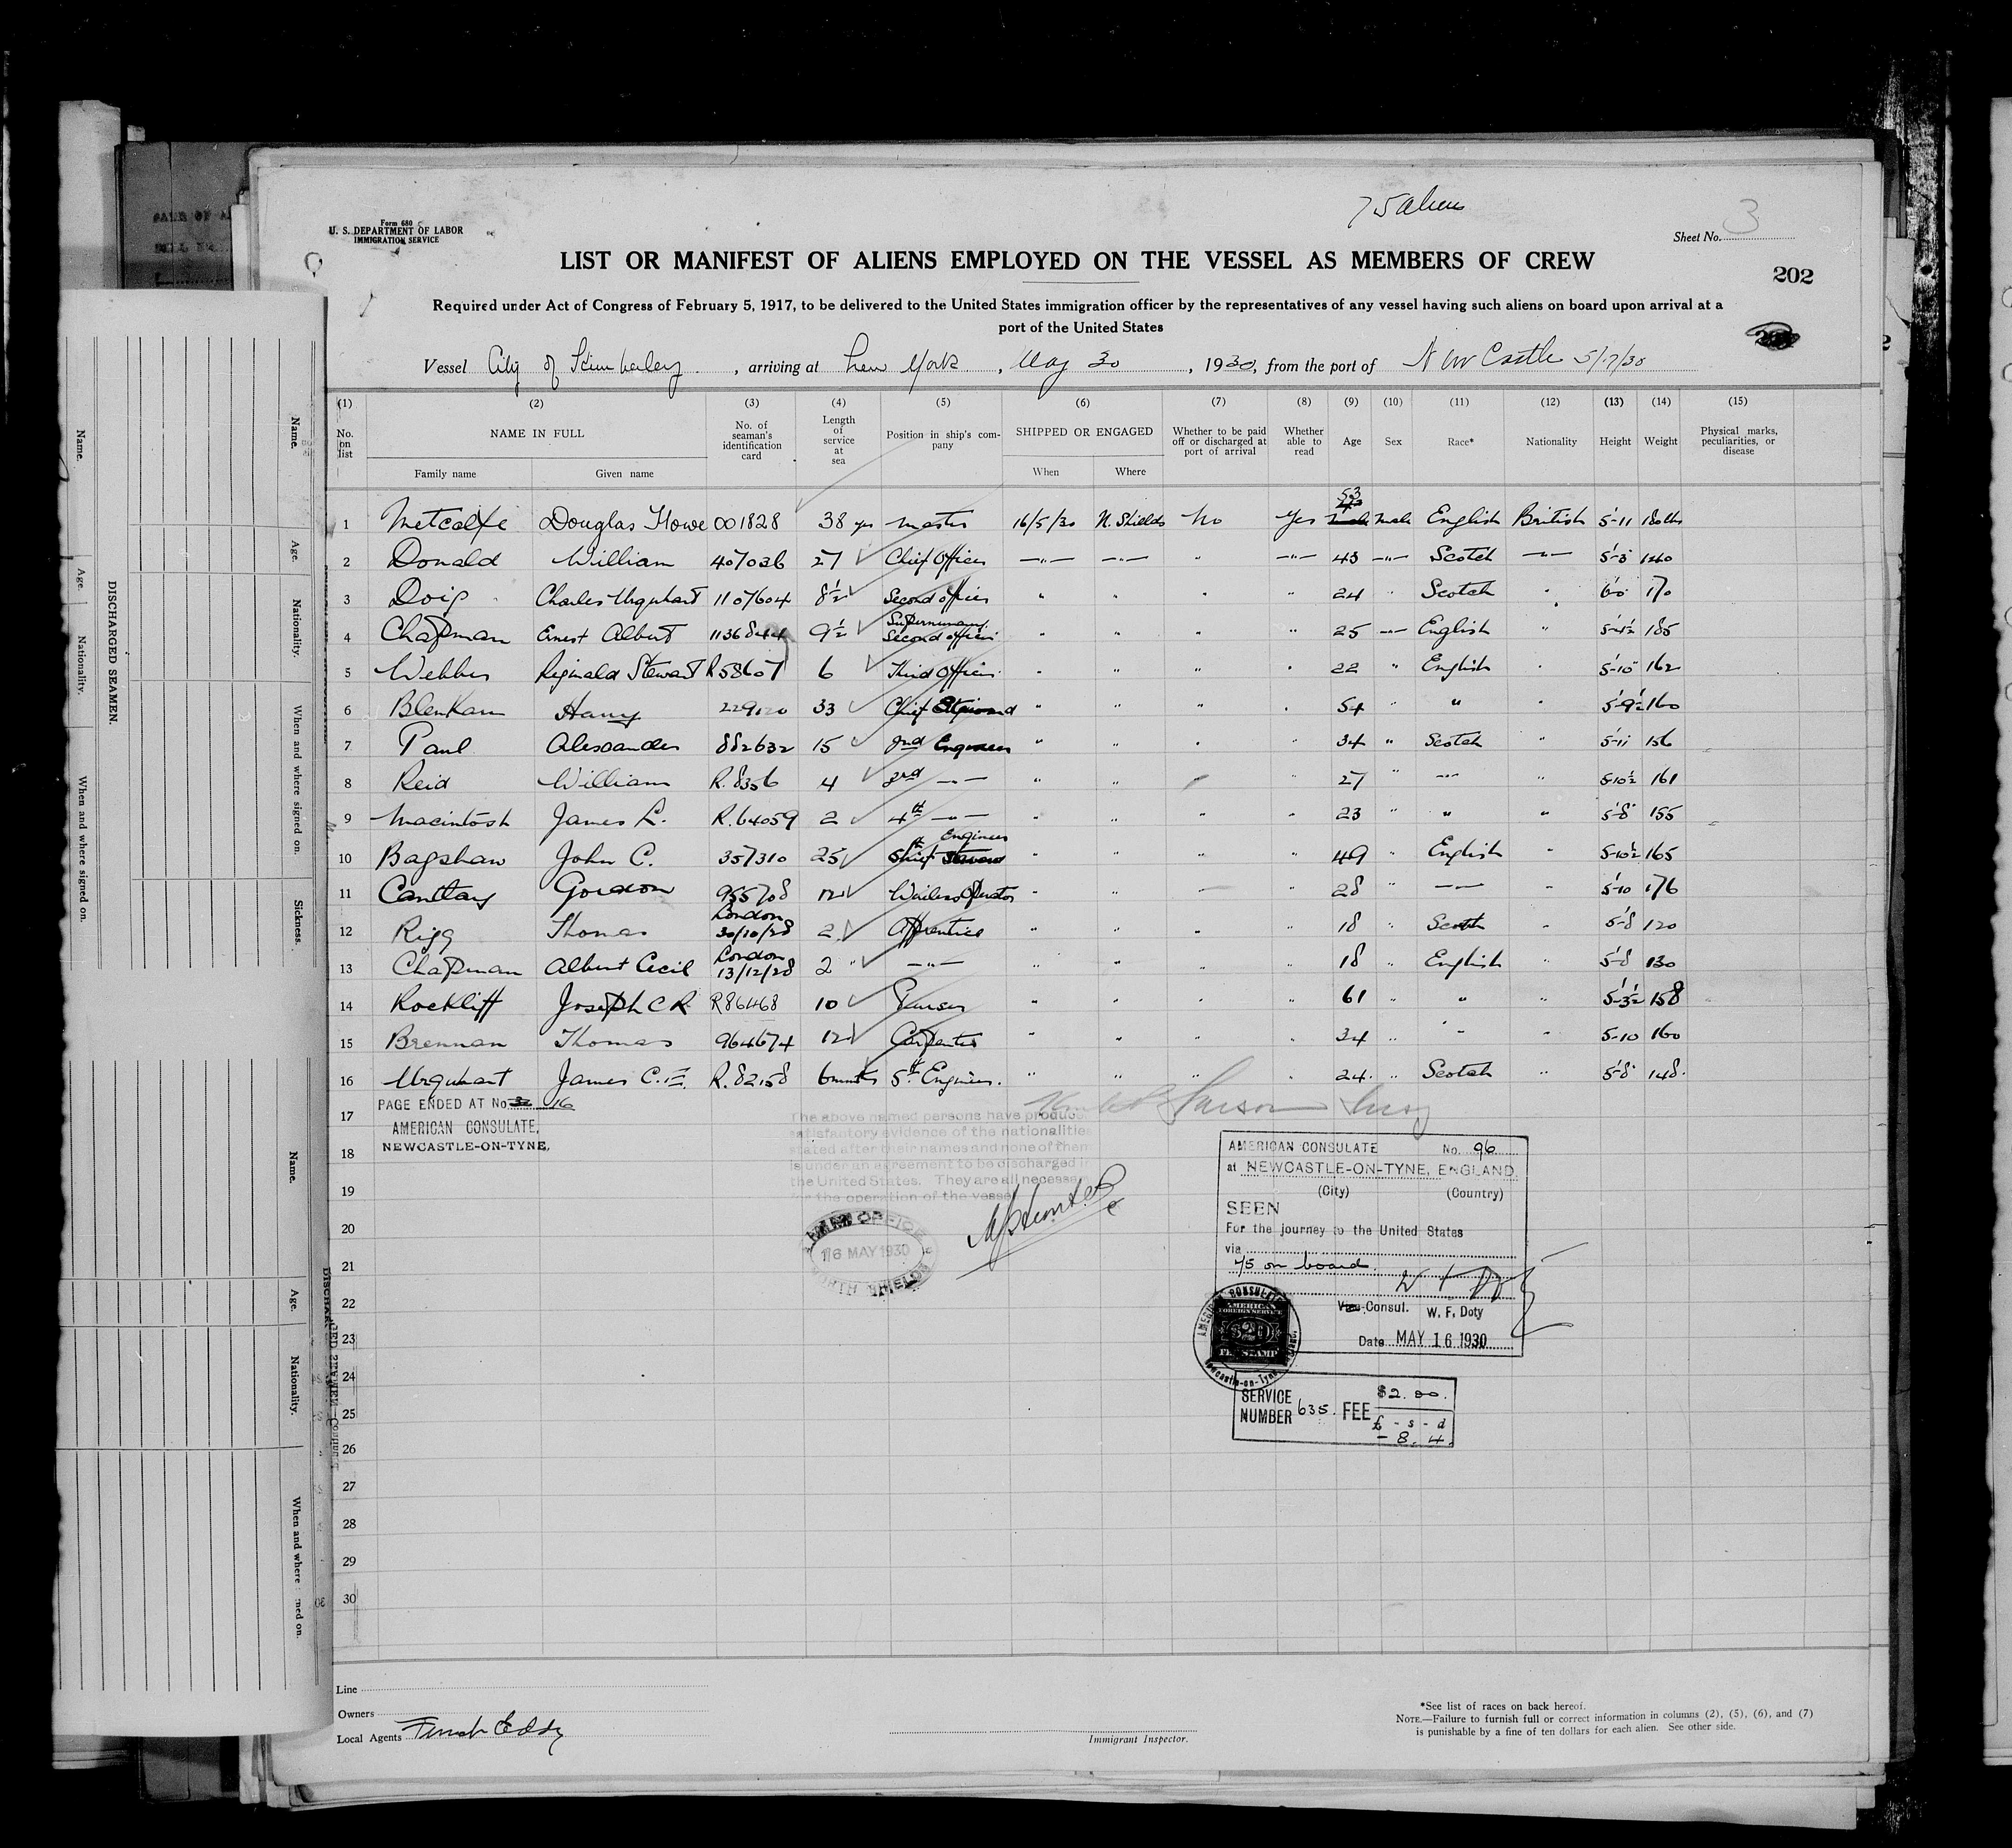 75 aliens
Form 680
U. S. DEPARTMENT OF LABOR
IMMIGRATION SERVICE
Sheet No. 3
LIST OR MANIFEST OF ALIENS EMPLOYED ON THE VESSEL AS MEMBERS OF CREW
202
Required under Act of Congress of February 5, 1917, to be delivered to the United States immigration officer by the representatives of any vessel having such aliens on board upon arrival at a
port of the United States
Vessel City of Kimberley, arriving at New York, May 30, 1930, from the port of New Castle 5/17/30
(1) (2) (3) (4) (5) (6) (7) (8) (9) (10) (11) (12) (13) (14) (15)
No. on list NAME IN FULL Family name Given name No. of seaman's identification card Length of service at sea Position in ship's company SHIPPED OR ENGAGED When Where Whether to be paid off or discharged at port of arrival Whether able to read Age Sex Race* Nationality Height Weight Physical marks, peculiarities, or disease
1 Metcalfe Douglas Howe 001828 38 yrs Master 16/5/30 N. Shields No Yes 53 Male English British 5-11 180 lbs
2 Donald William 407036 27 Chief Officer —"— —"— " —"— 43 —"— Scotch —"— 5-3 140
3 Doig Charles Urquhart 1107604 8½ Second Officer " " " " 24 " Scotch " 6-0 170
4 Chapman Ernest Albert 1136844 9½ Supernumary Second Officer " " " " 25 —"— English " 5-4½ 185
5 Webber Reginald Stewart R58607 6 Third Officer " " " " 22 " English " 5-10 162
6 Blenkarn Harry 229120 33 Chief " " " " 54 " " " 5-9½ 160
7 Paul Alexander 882632 15 2nd Engineer " " " " 34 " Scotch " 5-11 156
8 Reid William R.8356 4 3rd —"— " " " " 27 " —"— " 5-10½ 161
9 Macintosh James L. R.64059 2 4th —"— " " " " 23 " " " 5-8 155
10 Bagshaw John C. 357310 25 Engineer " " " " 49 " English " 5-10½ 165
11 Canttay Gordon 955708 12 Wireless Operator " " " " 28 " —"— " 5-10 176
12 Rigg Thomas London 30/10/28 2 Apprentice " " " " 18 " Scotch " 5-8 120
13 Chapman Albert Cecil London 13/12/28 2 " —"— " " " " 18 " English " 5-8 130
14 Rockliff Joseph C R R86468 10 Purser " " " " 61 " " " 5-3½ 158
15 Brennan Thomas 964674 12 Carpenter " " " " 34 " " " 5-10 160
16 Urquhart James C. R.82158 6 mnths 5th Engineer. " " " " 24 " Scotch " 5-8 148
17
18
19
20
21
22
23
24
25
26
27
28
29
30
PAGE ENDED AT No 16
AMERICAN CONSULATE,
NEWCASTLE-ON-TYNE,
The above named persons have produced
satisfactory evidence of the nationalities
stated after their names and none of them
is under an agreement to be discharged in
the United States. They are all necessary
for the operation of the vessel
OFFICE
16 MAY 1930
NORTH SHIELDS
AMERICAN CONSULATE No. 96
at NEWCASTLE-ON-TYNE, ENGLAND.
(City) (Country)
SEEN
For the journey to the United States
via
75 on board.
Vice Consul. W. F. Doty
Date MAY 16 1930
AMERICAN CONSULATE
Newcastle-on-Tyne
AMERICAN
FOREIGN SERVICE
$2.00
FEE STAMP
SERVICE NUMBER 635. FEE $2.00.
£ - s - d
- 8. 4.
Line
Owners
Local Agents
Immigrant Inspector.
*See list of races on back hereof.
NOTE.—Failure to furnish full or correct information in columns (2), (5), (6), and (7)
is punishable by a fine of ten dollars for each alien. See other side.
DISCHARGED SEAMEN.
Name.
Age.
Nationality.
When and where signed on.
Name.
Age.
Nationality.
When and where signed on.
Sickness.
Name.
Age.
Nationality.
When and where